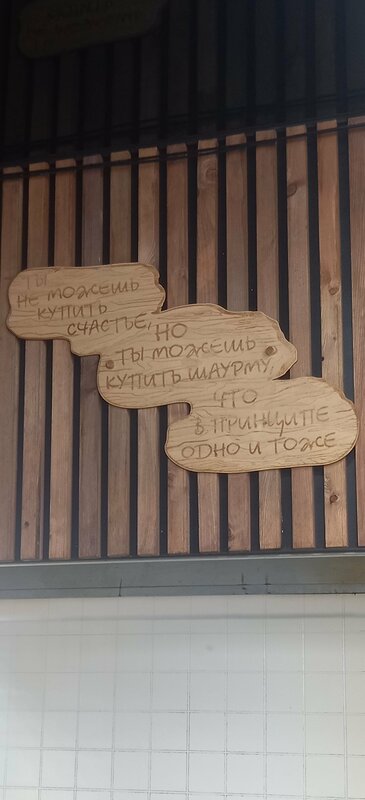 ТЫ
НЕ МОЖЕШЬ
КУПИТЬ
СЧАСТЬЕ,
НО
ТЫ МОЖЕШЬ
КУПИТЬ ШАУРМУ,
ЧТО
В ПРИНЦИПЕ
ОДНО И ТОЖЕ